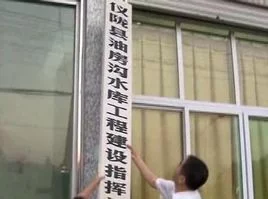 仪陇县油房沟水库工程建设指挥